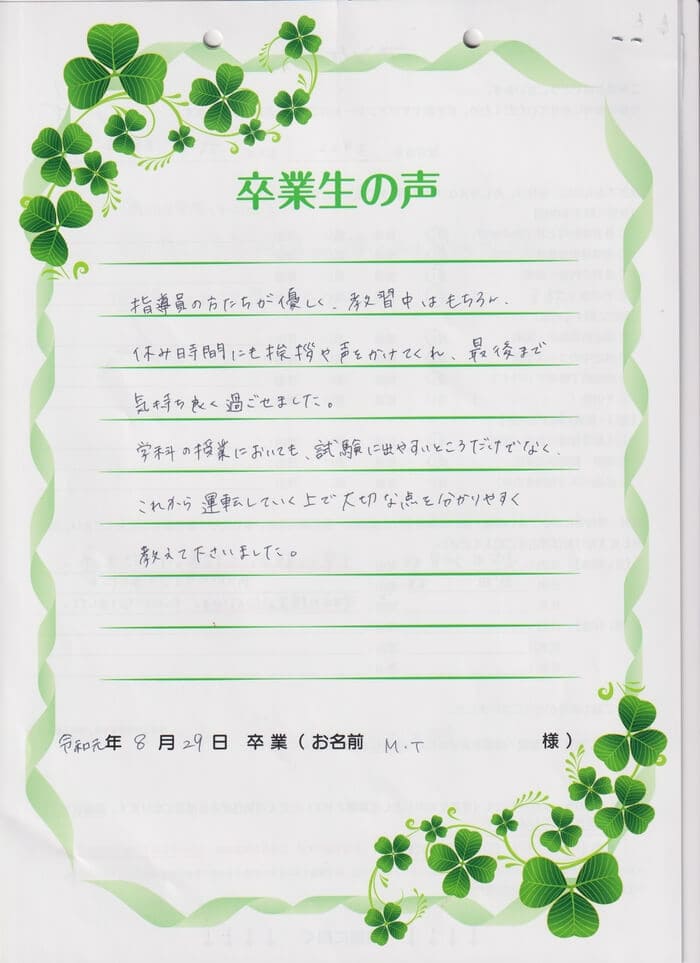 卒業生の声
指導員の方たちが優しく、教習中はもちろん、
休み時間にも挨拶や声をかけてくれ、最後まで
気持ち良く過ごせました。
学科の授業においても、試験に出やすいところだけでなく、
これから運転していく上で大切な点を分かりやすく
教えて下さいました。
令和元年 8 月 29 日 卒業(お名前 M.T 様)